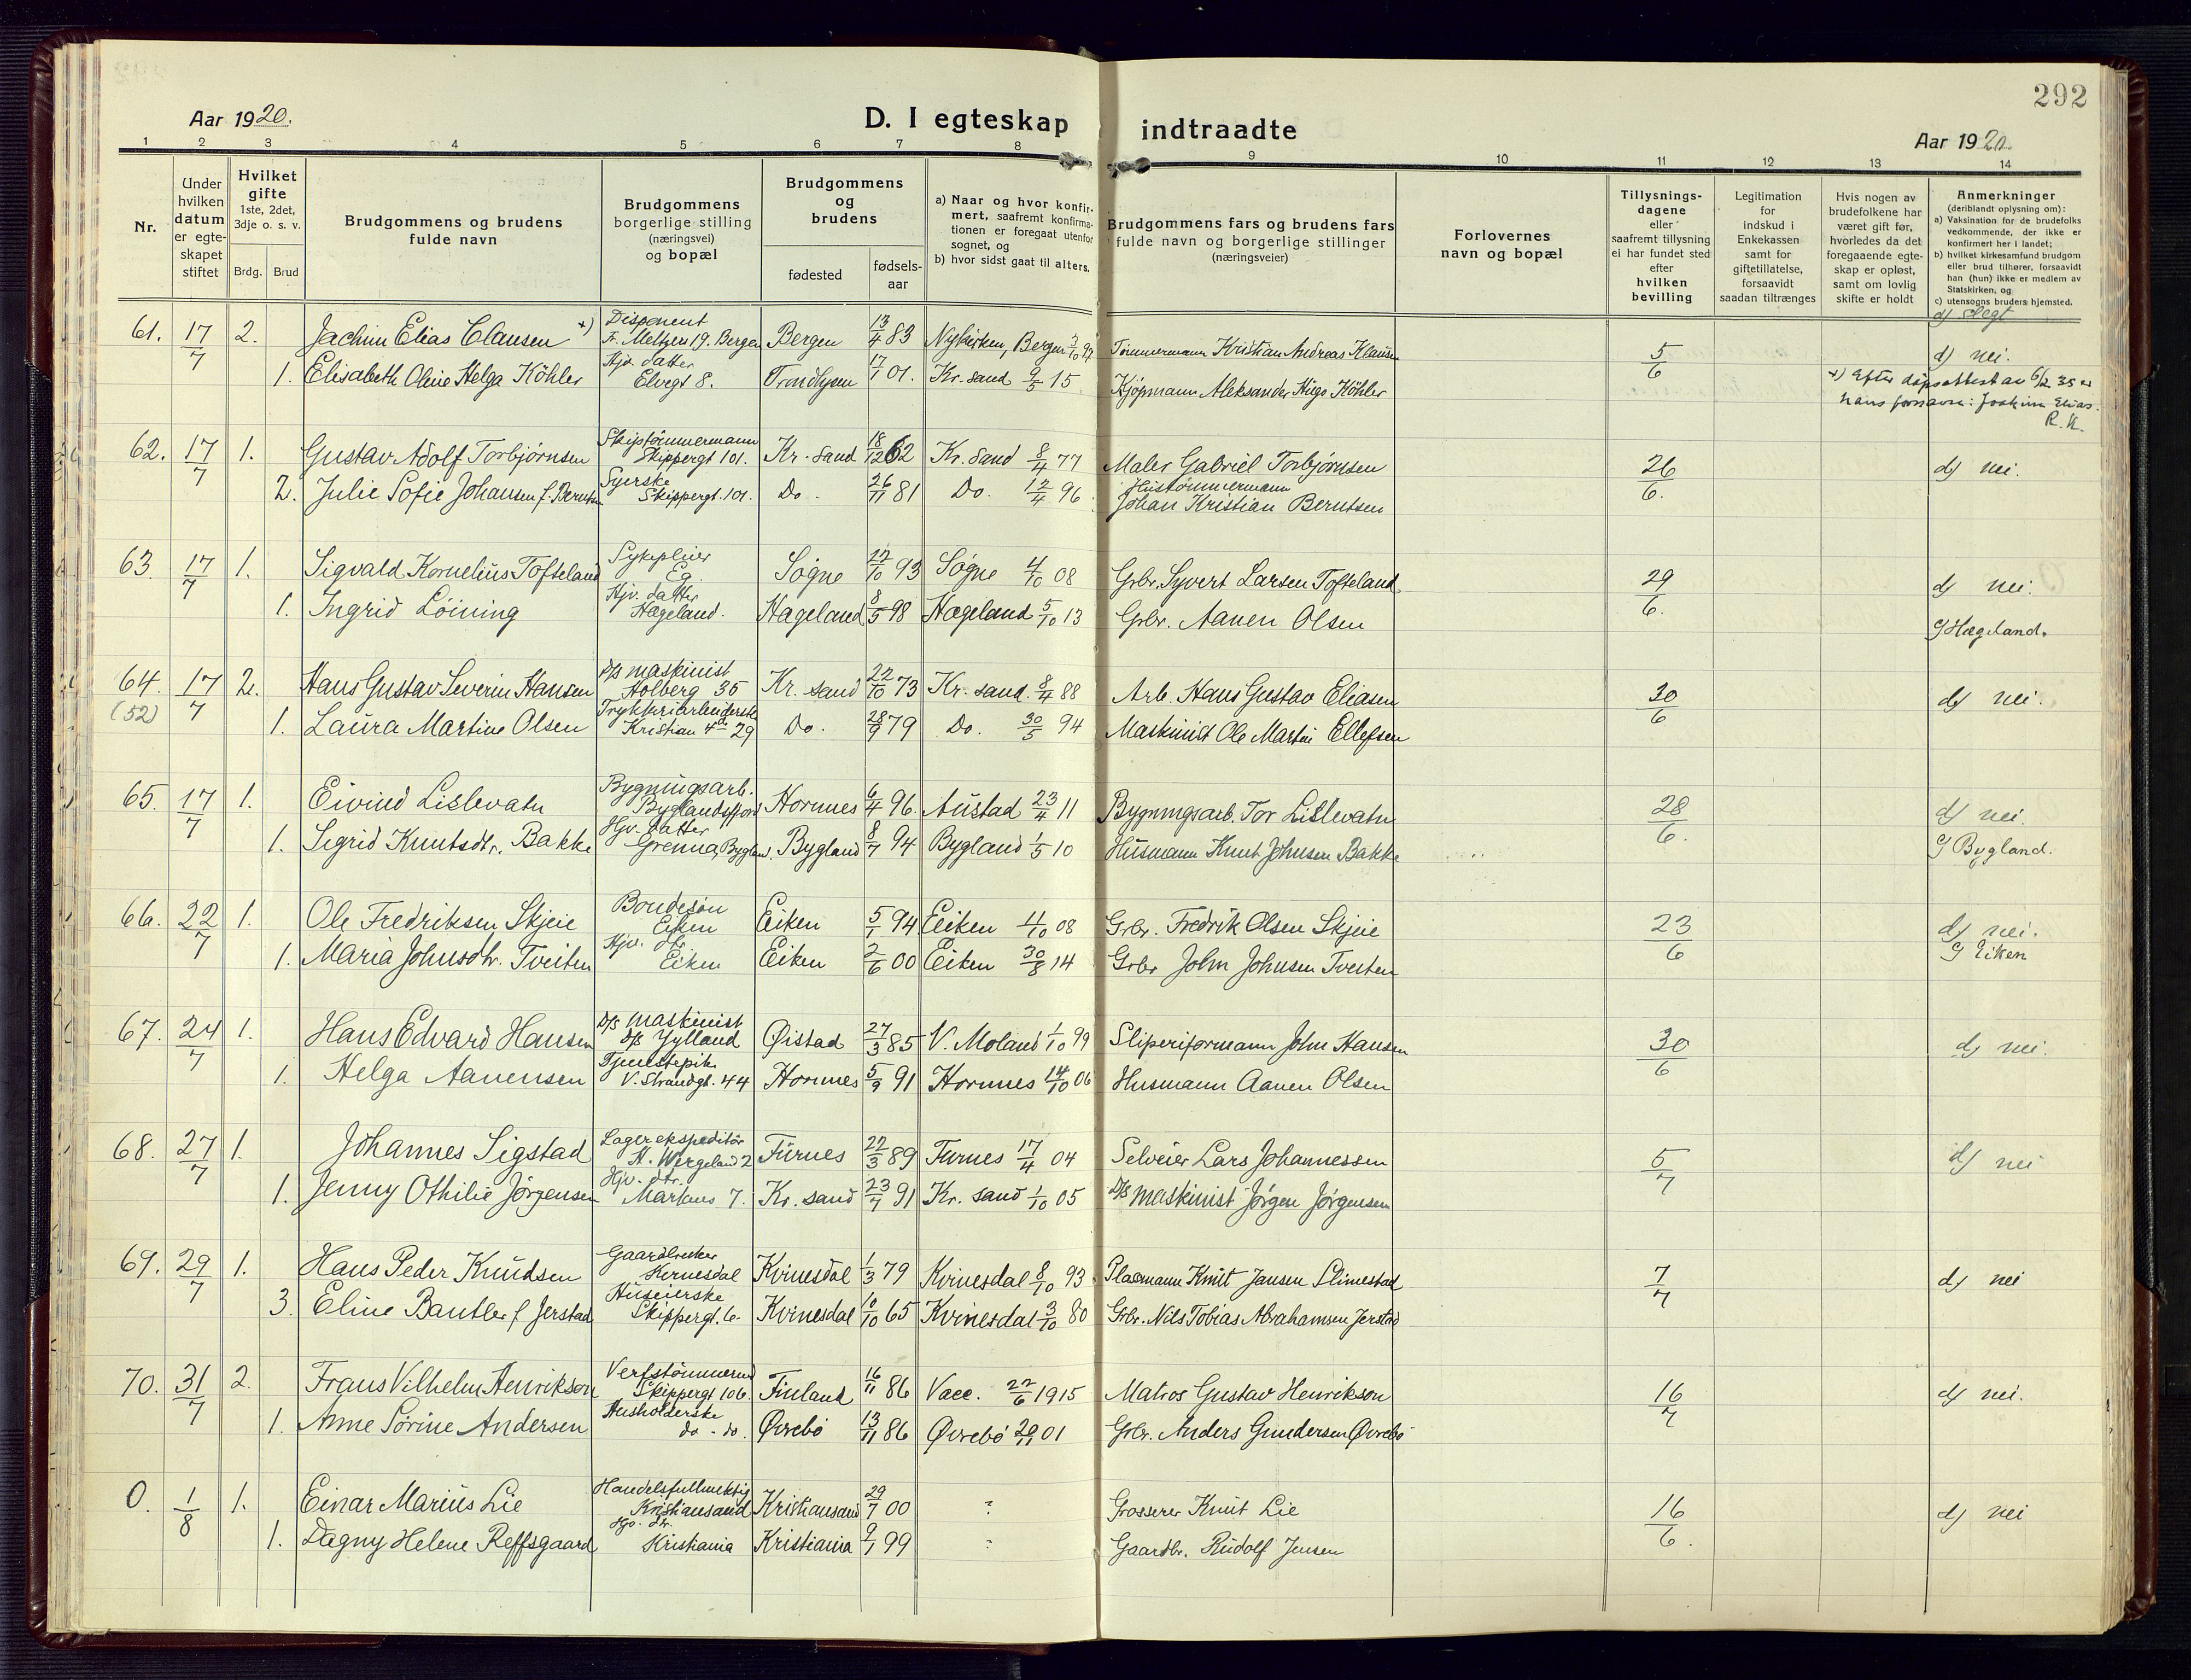 292
Aar 1920.
D. I egteskap indtraadte
Aar 1920.
1 2 3 4 5 6 7 8 9 10 11 12 13 14
Nr.
Under hvilken datum er egte-skapet stiftet
Hvilket gifte 1ste, 2det, 3dje o. s. v.
Brdg. Brud
Brudgommens og brudens fulde navn
Brudgommens borgerlige stilling (næringsvei) og bopæl
Brudgommens og brudens
fødested
fødsels-aar
a) Naar og hvor konfir-mert, saafremt konfirma-tionen er foregaat utenfor sognet, og
b) hvor sidst gaat til alters.
Brudgommens fars og brudens fars fulde navn og borgerlige stillinger (næringsveier)
Forlovernes navn og bopæl
Tillysnings-dagene eller saafremt tillysning ei har fundet sted efter hvilken bevilling
Legitimation for indskud i Enkekassen samt for giftetillatelse, forsaavidt saadan tiltrænges
Hvis nogen av brudefolkene har været gift før, hvorledes da det foregaaende egte-skap er opløst, samt om lovlig skifte er holdt
Anmerkninger (deriblandt oplysning om):
a) Vaksination for de brudefolks vedkommende, der ikke er konfirmert her i landet;
b) hvilket kirkesamfund brudgom eller brud tilhører, forsaavidt han (hun) ikke er medlem av Statskirken, og
c) utensogns bruders hjemsted.
d) Slegt
61. 17/7 2. Jachim Elias Clausen x) Disponent Fr. Meltzen 19. Bergen Bergen 13/4 83 Nykirken, Bergen Tømmermann Kristian Andreas Klausen 5/6 d) nei.
1. Elisabeth Oline Helga Köhler Hjv. datter Elvegt 8. Trondhjem 17/1 01. Kr. sand 9/5 15 Kjøpmann Aleksander Hugo Köhler
x) Efter dåpsattest av 6/2 35 er
hans fornavn: Joakim Elias.
R. K.
62. 17/7 1. Gustav Adolf Torbjørnsen Skipstømmermann Skippergt 101. Kr. sand 18/12 62 Kr. sand 8/4 77 Maler Gabriel Torbjørnsen 26/6. d) nei.
2. Julie Sofie Johansen f. Berntsen Syerske Skippergt. 101. Do. 26/11 81 Do. 12/4 96 Hustømmermann Johan Kristian Berntsen
63. 17/7 1. Sigvald Kornelius Tofteland Sykepleier Eg. Søgne 22/10 93 Søgne 4/10 08 Grbr. Syvert Larsen Tofteland 29/6. d) nei.
1. Ingrid Løining Hjv. datter Hægeland. Hageland 8/5 98 Hægeland 5/10 13 Grbr. Aanen Olsen Hægeland.
64. (52) 17/7 2. Hans Gustav Severin Hansen D/S maskinist Holberg 35 Kr. sand 22/10 73 Kr. sand. 8/4 88 Arb. Hans Gustav Eliasen 30/6 d) nei.
1. Laura Martine Olsen Trykkeriarbeiderske Kristian 4de 29 Do. 28/9 79 Do. 30/5 94 Maskinist Ole Martin Ellefsen
65. 17/7 1. Eivind Lislevatn Bygningsarb. Byglandsfjord Hornnes 6/4 96. Austad 23/4 11 Bygningsarb. Tor Lislevatn 28/6. d) nei.
1. Sigrid Knutsdtr. Bakke Hjv. datter Grenna, Bygland. Bygland 8/7 94 Bygland 1/5 10 Husmann Knut Johnsen Bakke Bygland.
66. 22/7 1. Ole Fredriksen Skjeie Bondesøn Eiken Eiken 5/1 94 Eiken 11/10 08 Grbr. Fredrik Olsen Skjeie 23/6 d) nei.
1. Maria Johnsdtr. Tveiten Hjv. dtr. Eiken Eiken 2/6 00 Eiken 30/8 14 Grbr John Johnsen Tveiten Eiken
67. 24/7 1. Hans Edvard Hansen D/S maskinist D/S Jylland Øistad 27/3 85 V. Moland 1/10 99 Sliperiformann John Hansen 30/6 d) nei.
1. Helga Aanensen Tjenestepike V. Strandgt. 44 Hornnes 5/9 91 Hornnes 14/10 06 Husmann Aanen Olsen
68. 27/7 1. Johannes Sigstad Lagerekspeditør H. Wergeland 2 Furnes 22/3 89 Furnes 17/4 04 Selveier Lars Johannessen 5/7 d) nei
1. Jenny Othilie Jørgensen Hjv. dtr. Markens 7. Kr. sand 23/7 91 Kr. sand 1/10 05 D/S maskinist Jørgen Jørgensen
69. 29/7 1. Hans Peder Knudsen Gaardbruker Kvinesdal Kvinesdal 1/3 79 Kvinesdal 8/10 93 Plasmann Knut Jansen Slimestad 7/7 d) nei
3. Eline Bantler f. Jerstad Huseierske Skippergt. 6. Kvinesdal 10/10 65 Kvinesdal 3/10 80 Grbr. Nils Tobias Abrahamsen Jerstad
70. 31/7 2. Frans Vilhelm Henrikson Verftstømmermd Skippergt 106. Finland 16/11 86 Vacc. 22/6 1915 Matros Gustav Henrikson 16/7 d) nei.
1. Anne Sørine Andersen Husholderske do - do. Øvrebø 13/11 86 Øvrebø 20/11 01 Grbr. Anders Gundersen Øvrebø
0. 1/8 1. Einar Marius Lie Handelsfullmektig Kristiansand Kristiansand 29/7 00 ? Grosserer Knut Lie 16/6. d) nei
1. Dagny Helene Reffsgaard Hjv. dtr. Kristiania Kristiania 9/1 99 ? Gaardbr. Rudolf Jensen